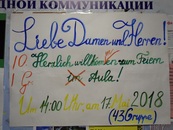 ДНОЙ КОММУНИКАЦИИ
Liebe Damen und Herren!
10 Herzlich willkommen zum Feiern
1 G im Aula!
Um 14:00 Uhr, am 17 Mai 2018
(43 Gruppe)